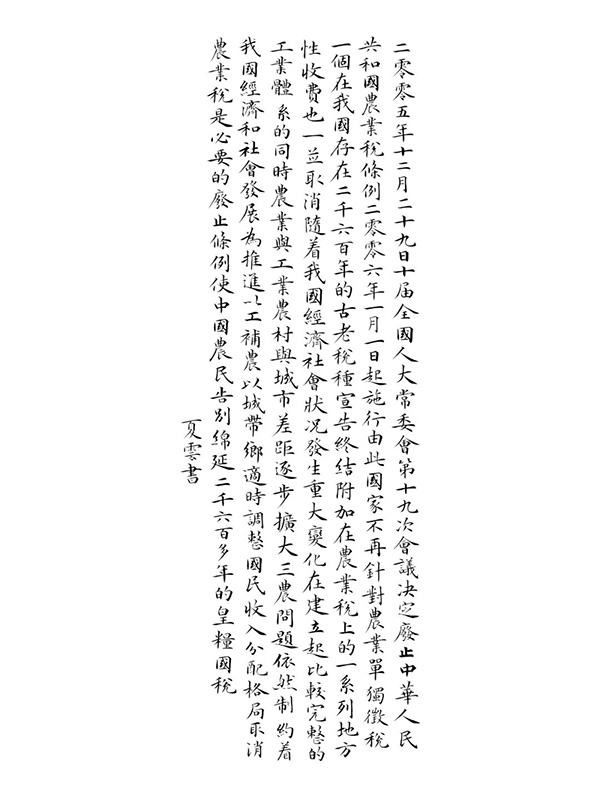 二零零五年十二月二十九日十届全國人大常委會第十九次會議決定廢止中華人民
共和國農業稅條例二零零六年一月一日起施行由此國家不再針對農業單獨徵稅
一個在我國存在二千六百年的古老稅種宣告終結附加在農業稅上的一系列地方
性收費也一並取消隨着我國經濟社會狀况發生重大變化在建立起比較完整的
工業體系的同時農業與工業農村與城市差距逐步擴大三農問題依然制約着
我國經濟和社會發展為推進以工補農以城帶鄉適時調整國民收入分配格局取消
農業稅是必要的廢止條例使中國農民告別綿延二千六百多年的皇糧國稅
夏雲書